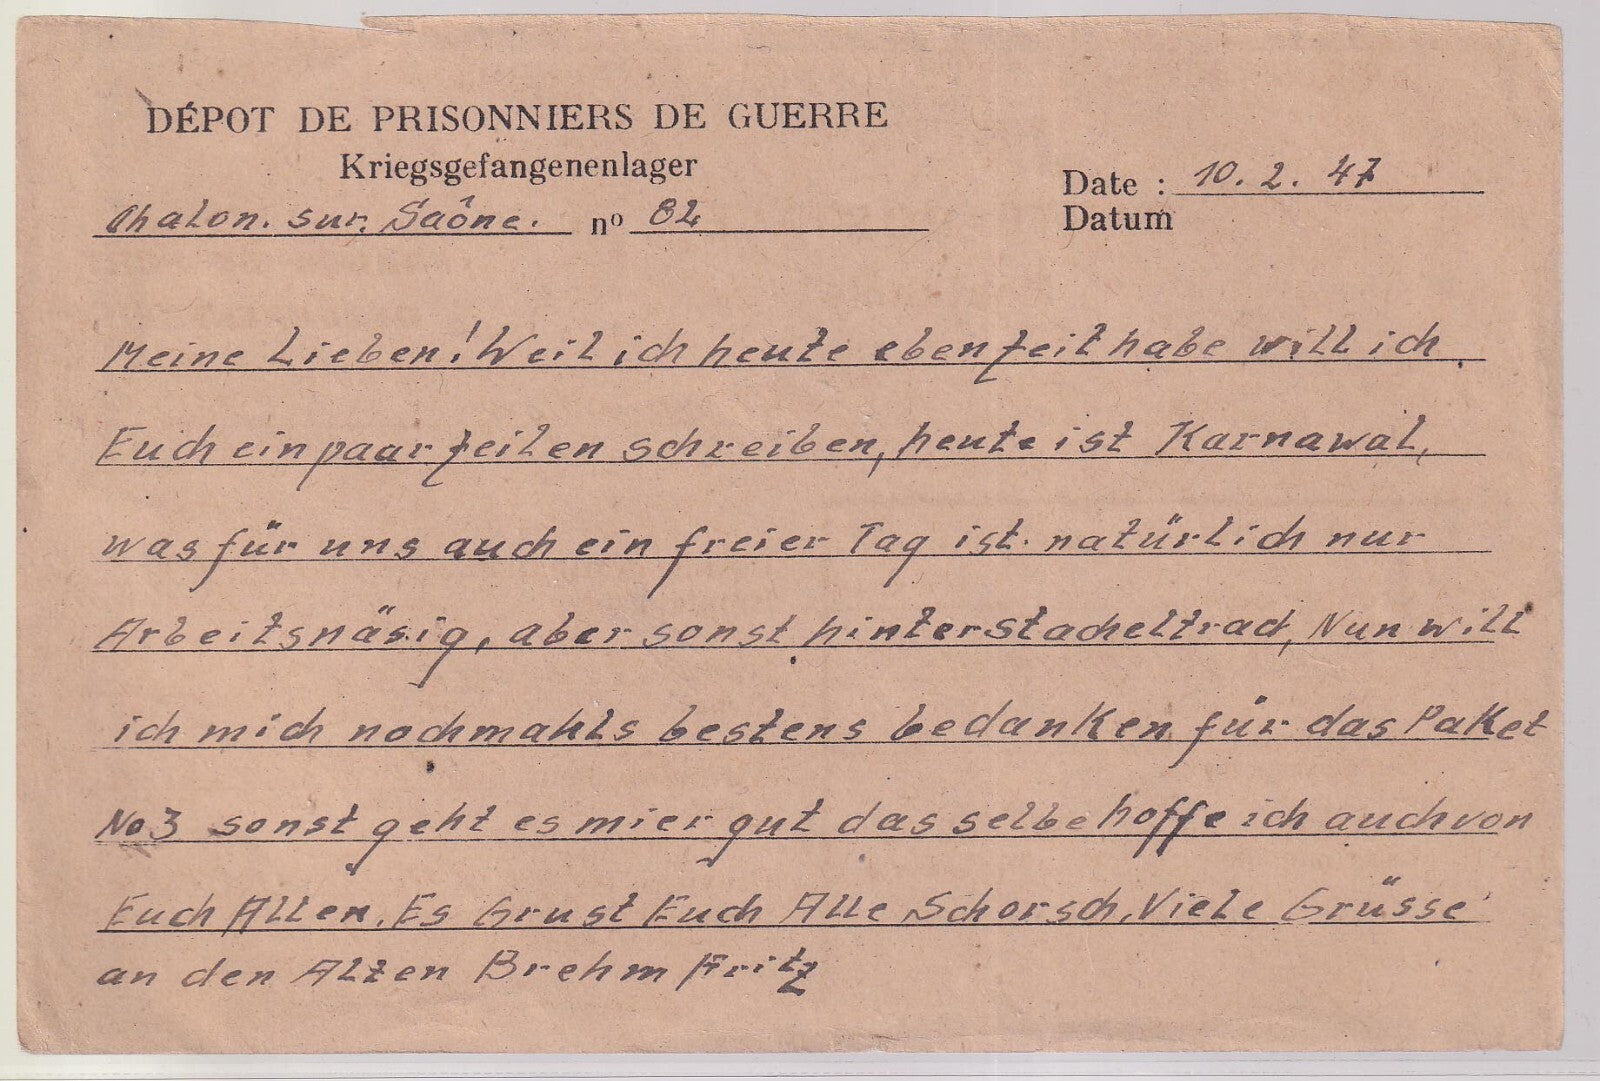 DÉPOT DE PRISONNIERS DE GUERRE
Kriegsgefangenenlager
Chalon. sur. Saône. nº 82
Date : 10. 2. 47
Datum
Meine Lieben! Weil ich heute eben zeit habe will ich
Euch ein paar zeilen schreiben, heute ist Karnawal,
was für uns auch ein freier Tag ist. natürlich nur
Arbeitsnäsig, aber sonst hinterstacheltrad, Nun will
ich mich nochmahls bestens bedanken für das Paket
No 3 sonst geht es mier gut das selbe hoffe ich auch von
Euch Allen. Es Grust Euch Alle Schorsch, Viele Grüsse
an den Alten Brehm Fritz